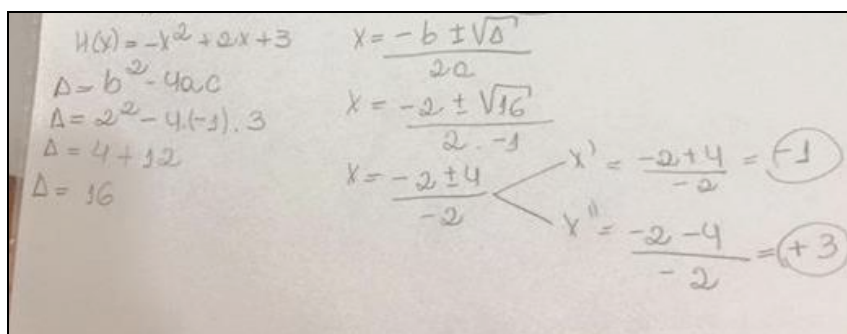 H(x) = -x² + 2x + 3
Δ = b² - 4ac
Δ = 2² - 4.(-1).3
Δ = 4 + 12
Δ = 16
x = -b ± √Δ / 2a
x = -2 ± √16 / 2 . -1
x = -2 ± 4 / -2
x' = -2 + 4 / -2 = -1
x'' = -2 - 4 / -2 = +3